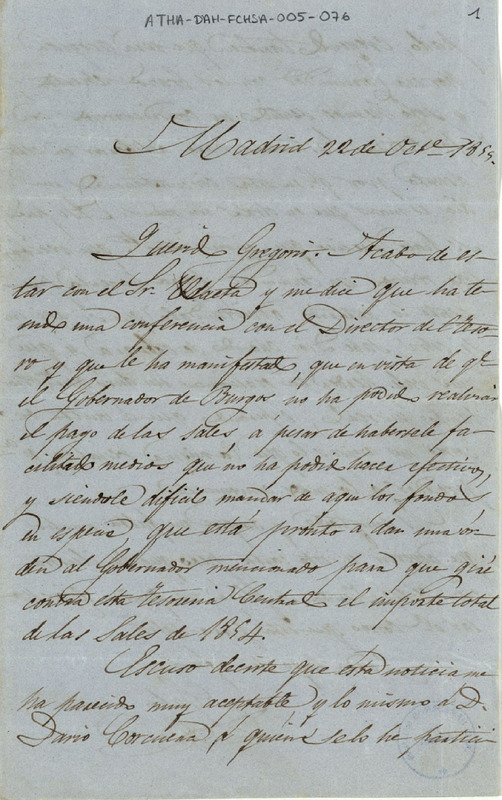 ATHA-DAH-FCHSA-005-076
1
Madrid 22 de Oct.e 1855.
Querido Gregorio. Acabo de es-
tar con el Sr. y me dice que ha te-
nido una conferencia con el Director del Teso-
ro y que le ha manifestado, que en vista de qe
el Gobernador de Burgos no ha podido realizar
el pago de las sales, á pesar de habersele fa-
cilitado medios que no ha podido hacer efectivos,
y siendole dificil mandar de aqui los fondos
en especie, que está pronto á dar una or-
den al Gobernador mencionado para que gire
contra esta Tesoreria Central el importe total
de las Sales de 1854.
Escuso decirte que esta noticia me
ha parecido muy aceptable y lo mismo á D.
Dario á quien se lo he partici-